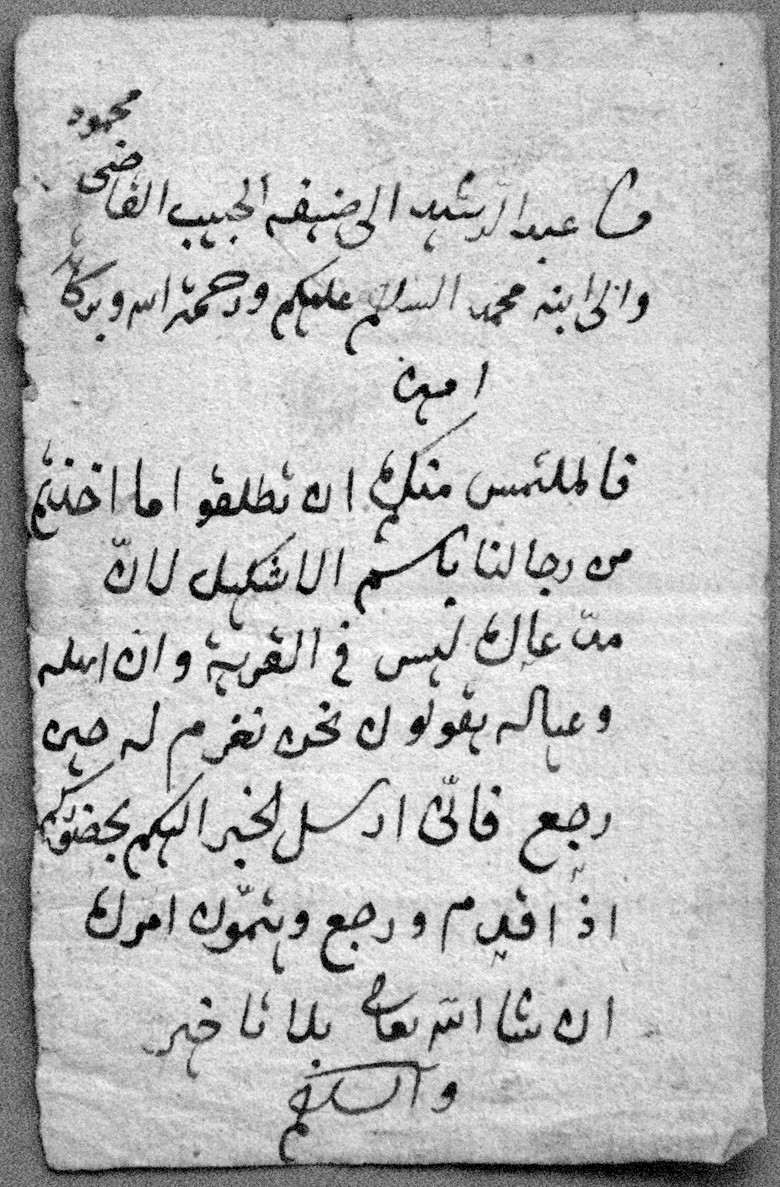 محمود
من عبد الرشيد الى ضيفه الحبيب القاضى
والى ابنه محمد السلام عليكم ورحمة الله وبركاته
امين
فالملتمس منك ان تطلقو اما اخذتم
من رجالنا باسم الاشكيل لانّ
عالك ليس فى القرية وانّ اهله
وعياله يقولون نحن نغرم له حين
رجع فانّى ارسل لخبر اليكم بحضوركم
اذا قدم ورجع ويتمّون امرك
ان شا الله تعالى بلا تاخير
والسلام